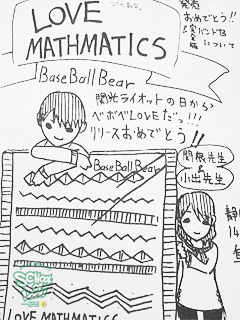 LOVE
MATHMATICS
発売
おめでとう!!
について
BaseBallBear
閃光ライオットの日から
ベボベLOVEだっ!!!
リリースおめでとう!!
BaseBallBear
関根先生
小出先生
静
14
LOVE MATHMATICS